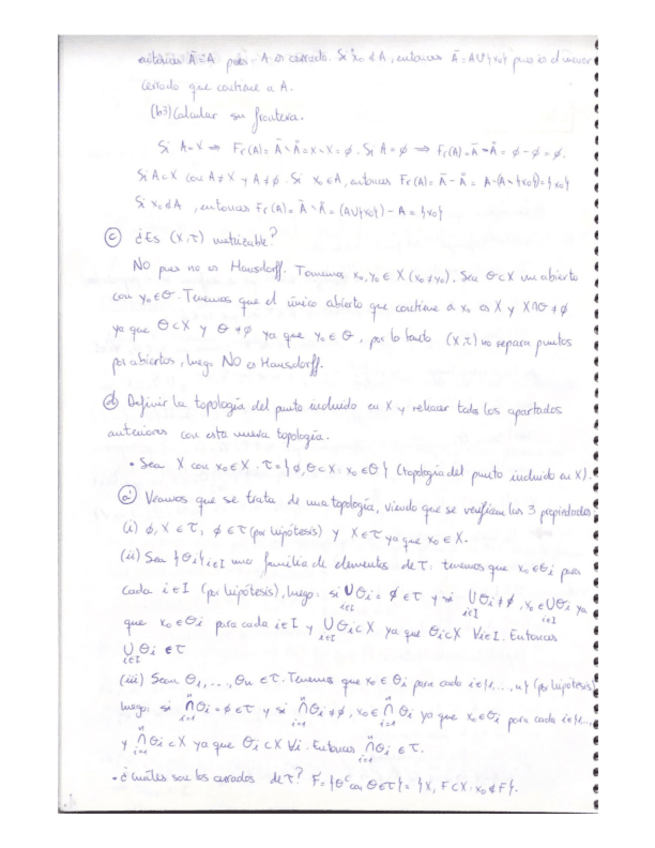 entonces Ā=A pues A es cerrado. Si x₀∉A, entonces Ā=A∪{x₀} pues es el menor
cerrado que contiene a A.
(b3) Calcular su frontera.
Si A=X ⇒ Fr(A)=Ā\Å=X\X=ø. Si A=ø ⇒ Fr(A)=Ā-Å=ø-ø=ø.
Si A⊂X con A≠X y A≠ø. Si x₀∈A, entonces Fr(A)=Ā-Å=A-(A\{x₀})={x₀}
Si x₀∉A, entonces Fr(A)=Ā\Å=(A∪{x₀})-A={x₀}
ⓒ ¿Es (X,τ) metrizable?
NO pues no es Hausdorff. Tomemos x₀,y₀∈X (x₀≠y₀). Sea Θ⊂X un abierto
con y₀∈Θ. Tenemos que el único abierto que contiene a x₀ es X y X∩Θ≠ø
ya que Θ⊂X y Θ≠ø ya que y₀∈Θ, por lo tanto (X,τ) no separa puntos
por abiertos, luego NO es Hausdorff.
ⓓ Definir la topología del punto incluido en X y rehacer todos los apartados
anteriores con esta nueva topología.
• Sea X con x₀∈X. τ={ø,Θ⊂X: x₀∈Θ} (topología del punto incluido en X).
ⓐ' Veamos que se trata de una topología, viendo que se verifican las 3 propiedades:
(i) ø,X∈τ, ø∈τ (por hipótesis) y X∈τ ya que x₀∈X.
(ii) Sea {Θi}i∈I una familia de elementos de τ: tenemos que x₀∈Θi para
cada i∈I (por hipótesis), luego: si ∪i∈I Θi=ø∈τ y si ∪i∈I Θi≠ø, x₀∈∪i∈I Θi ya
que x₀∈Θi para cada i∈I y ∪i∈I Θi⊂X ya que Θi⊂X ∀i∈I. Entonces
∪i∈I Θi∈τ
(iii) Sean Θ₁,...,Θn∈τ. Tenemos que x₀∈Θi para cada i∈{1,...,n} (por hipótesis)
luego: si ∩ⁿi=1 Θi=ø∈τ y si ∩ⁿi=1 Θi≠ø, x₀∈∩ⁿi=1 Θi ya que x₀∈Θi para cada i∈{1,...
y ∩ⁿi=1 Θi⊂X ya que Θi⊂X ∀i. Entonces ∩ⁿi=1 Θi∈τ.
• ¿Cuáles son los cerrados de τ? F={Θᶜ con Θ∈τ}={X, F⊂X: x₀∉F}.